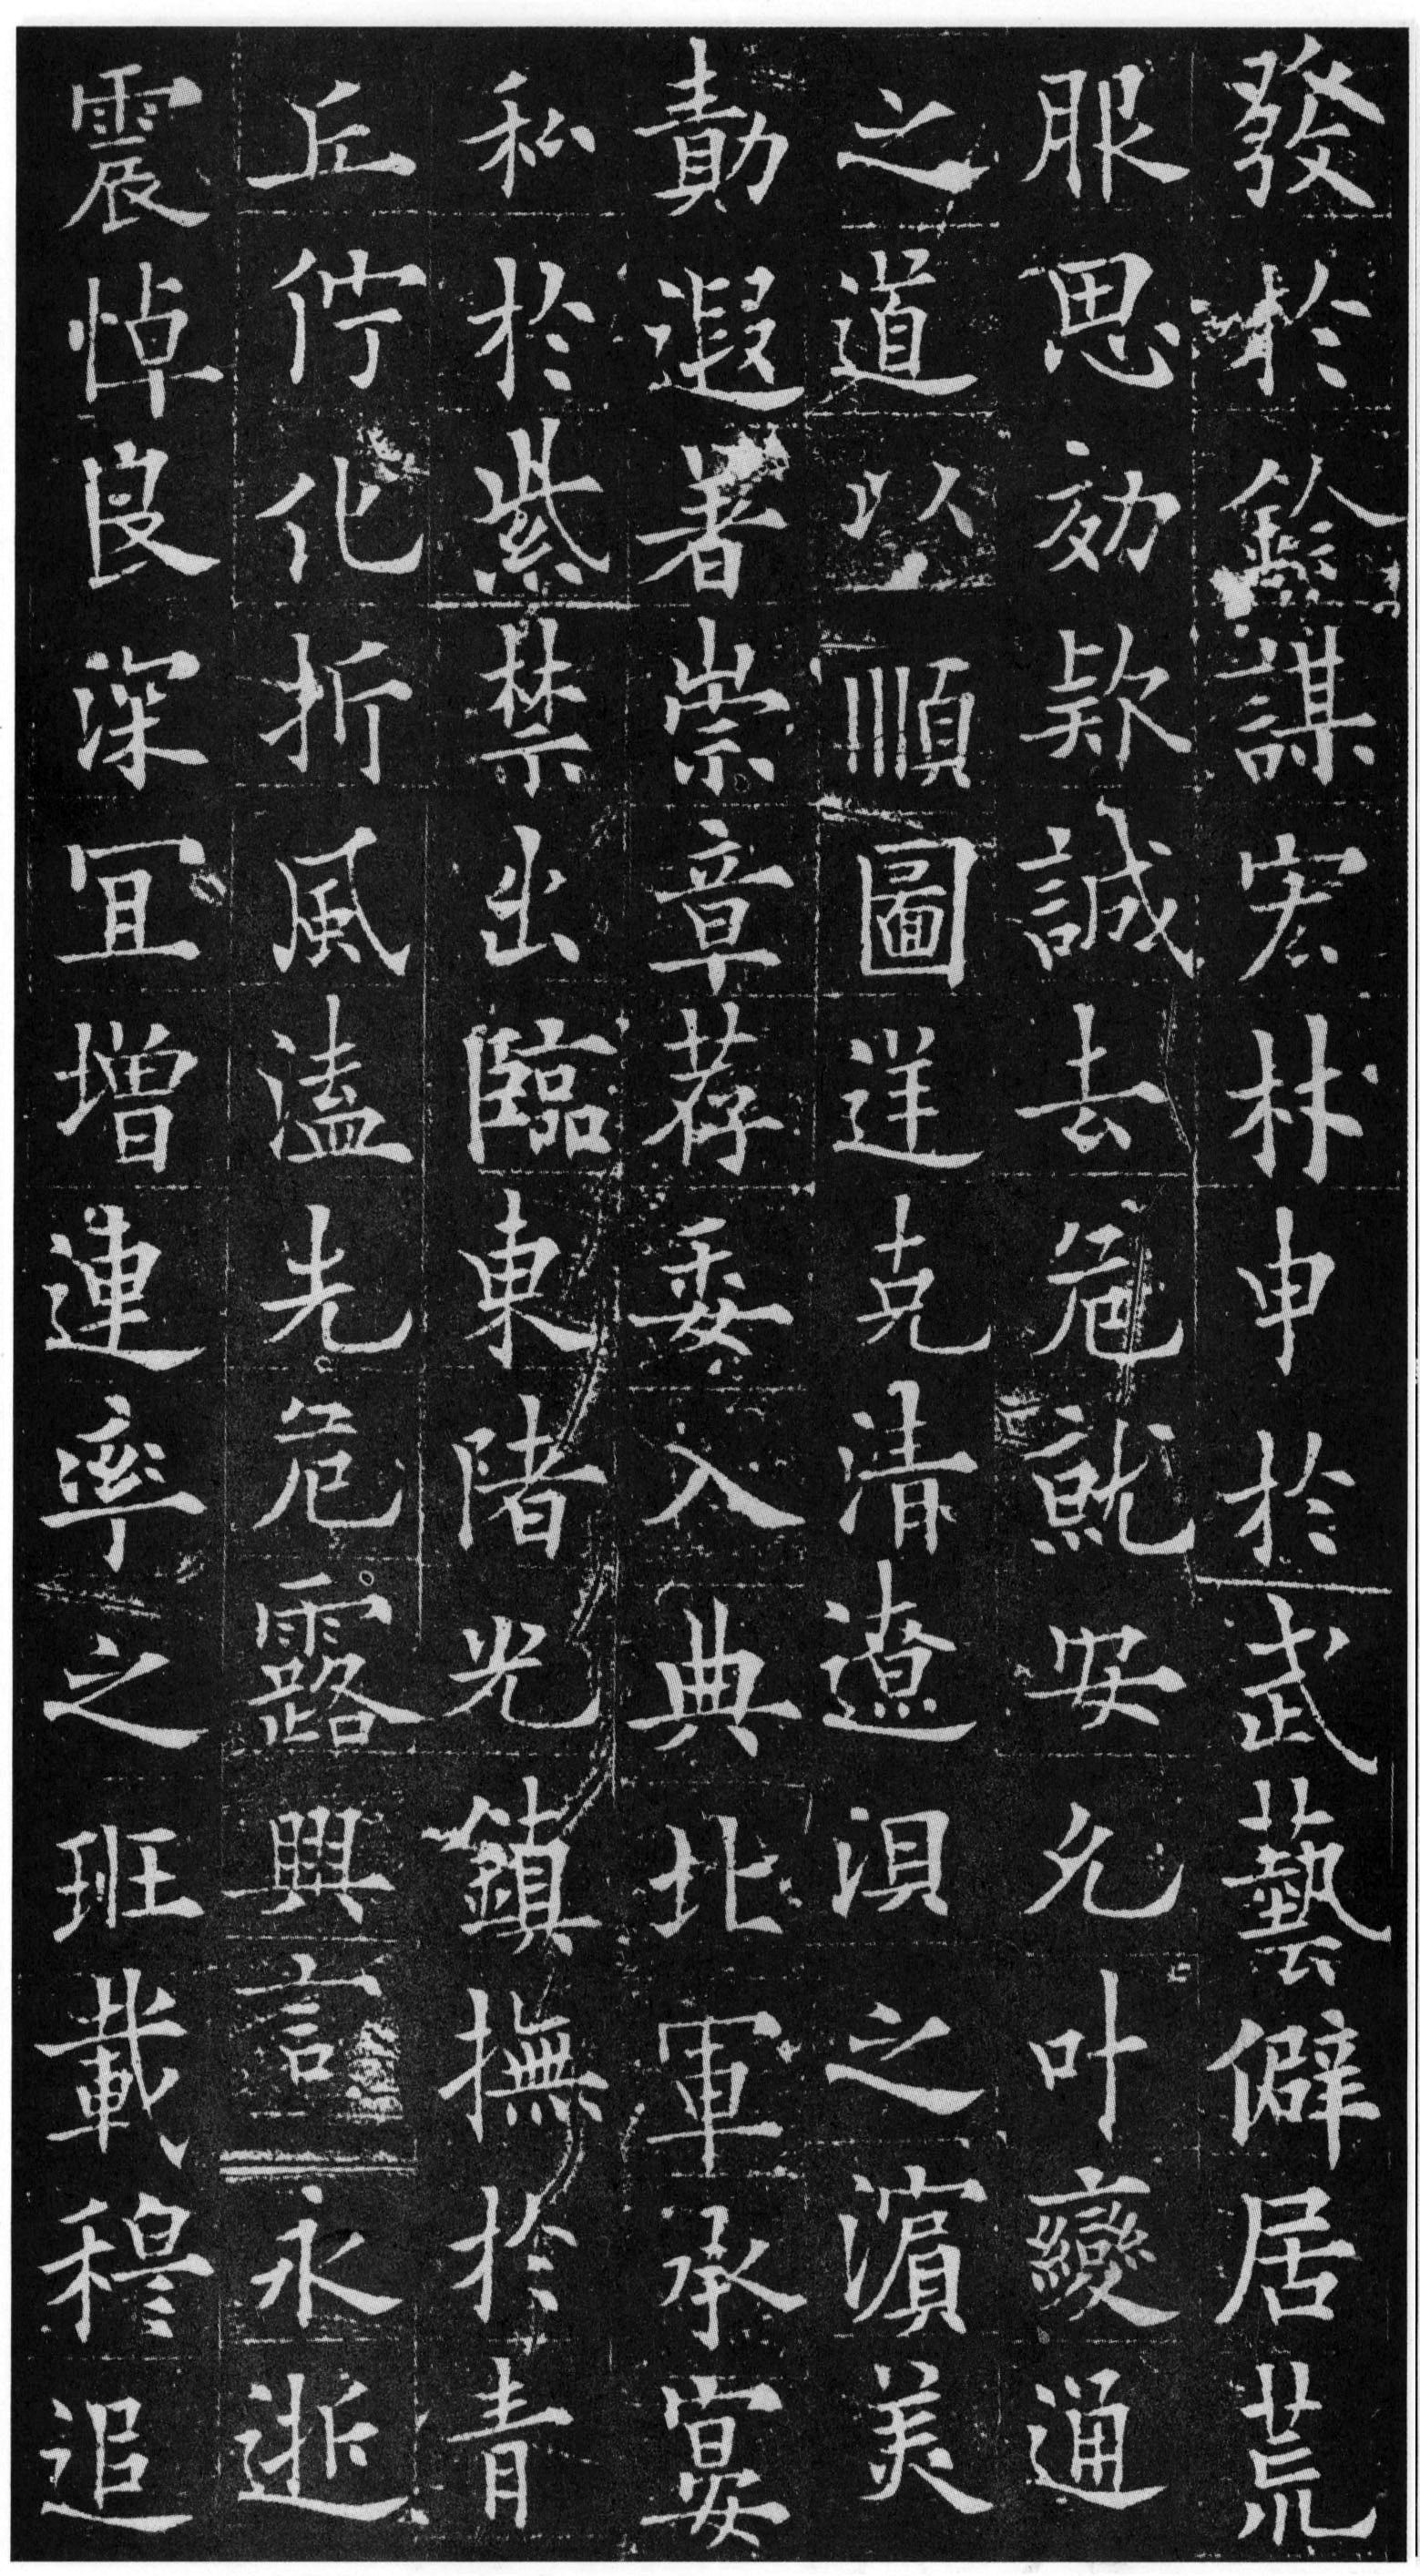 發於餘謀宏林申於武藝僻居荒
服思効款誠去危就安允叶變通
之道以順圖逆克清遼浿之濱美
勣遐著崇章荐委入典北軍承宴
私於紫禁出臨東陼光鎮撫於青
丘佇化折風溘先危露興言永逝
震悼良深宜增連率之班載穆追